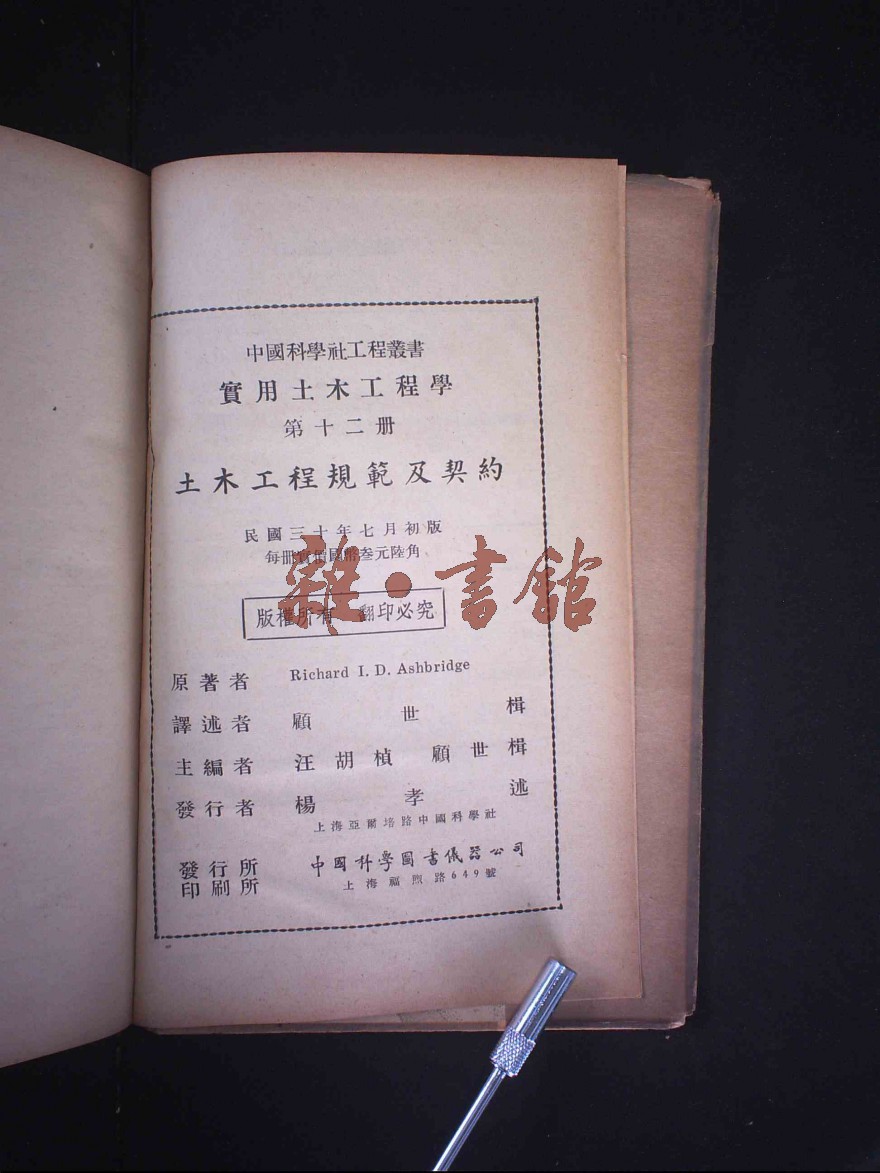 中國科學社工程叢書
實用土木工程學
第十二册
土木工程規範及契約
民國三十年七月初版
每册實價國幣叁元陸角
雜·書館
版權所有 翻印必究
原著者 Richard I. D. Ashbridge
譯述者 顧世楫
主編者 汪胡楨 顧世楫
發行者 楊孝述
上海亞爾培路中國科學社
發行所 中國科學圖書儀器公司
印刷所 上海福煦路649號